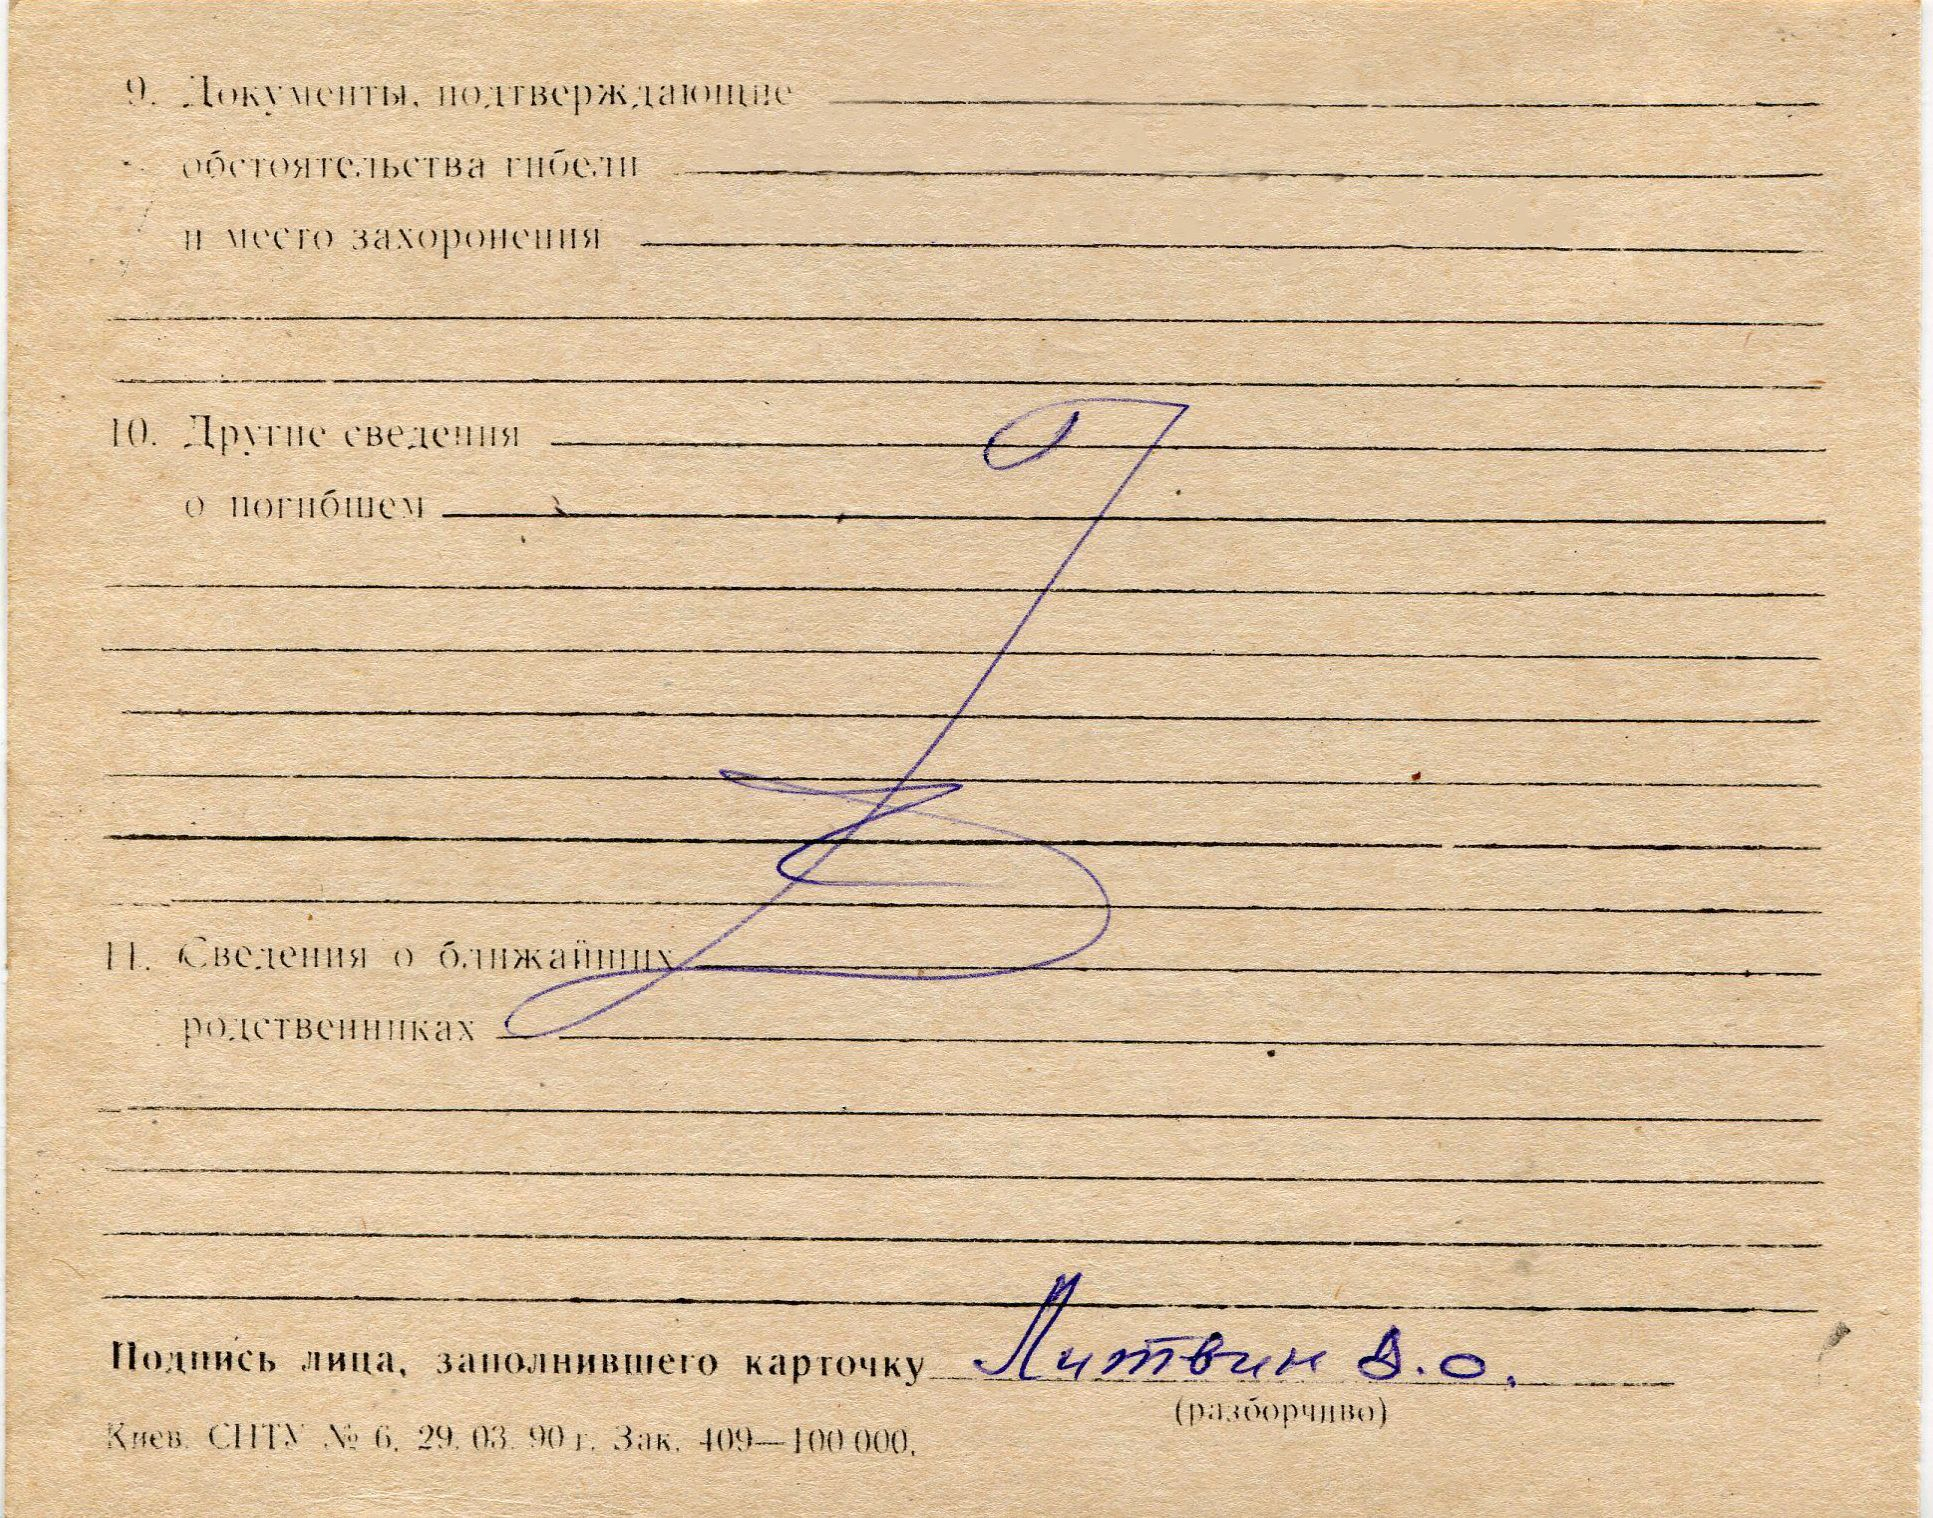 9. Документы, подтверждающие
обстоятельства гибели
и место захоронения
10. Другие сведения
о погибшем
11. Сведения о ближайших
родственниках
Подпись лица, заполнившего карточку Литвин В.О.
(разборчиво)
Киев. СПТУ № 6. 29. 03. 90 г. Зак. 409—100 000.